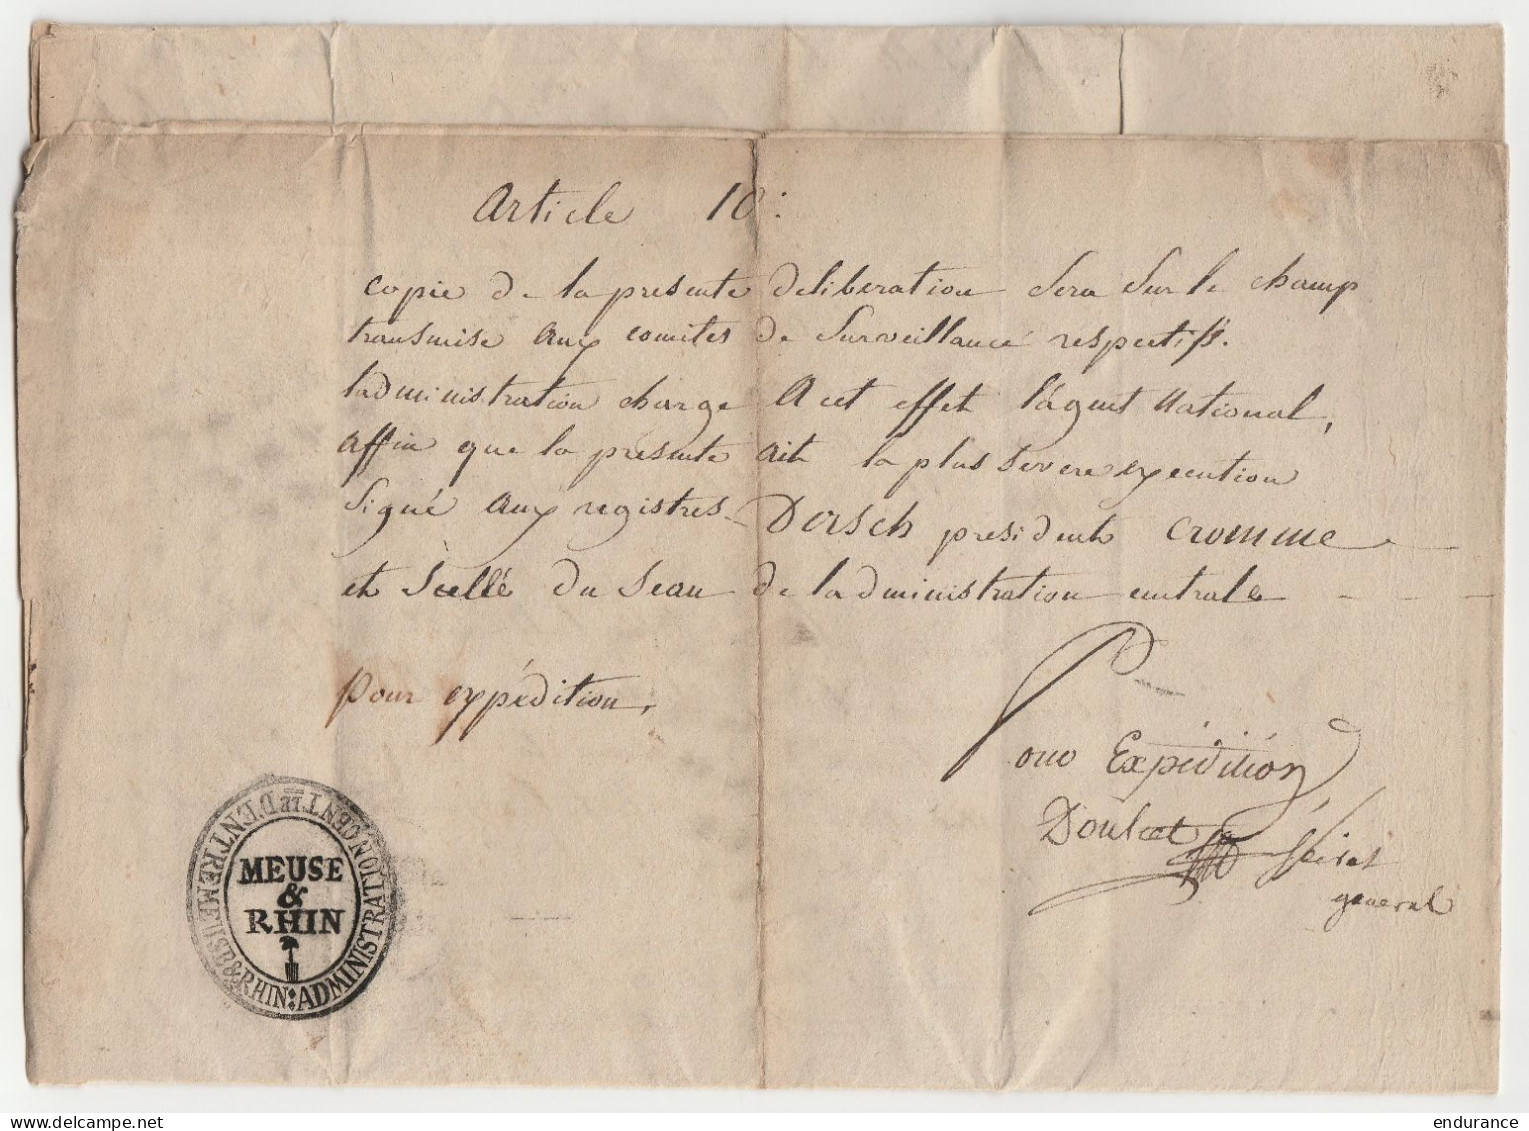 Article 10:
copie de la presente deliberation sera sur le champ
transmise aux comités de surveillance respectifs.
ladministration charge a cet effet l'agent national,
affin que la présente ait la plus severe execution
signé aux registres Dorsch president Cromme
et scellé du sceau de ladministration centrale
pour expédition,
Pour Expédition
general
ADMINISTRATION CENT.le D'ENTRE MEUSE & RHIN:
MEUSE
&
RHIN
endurance